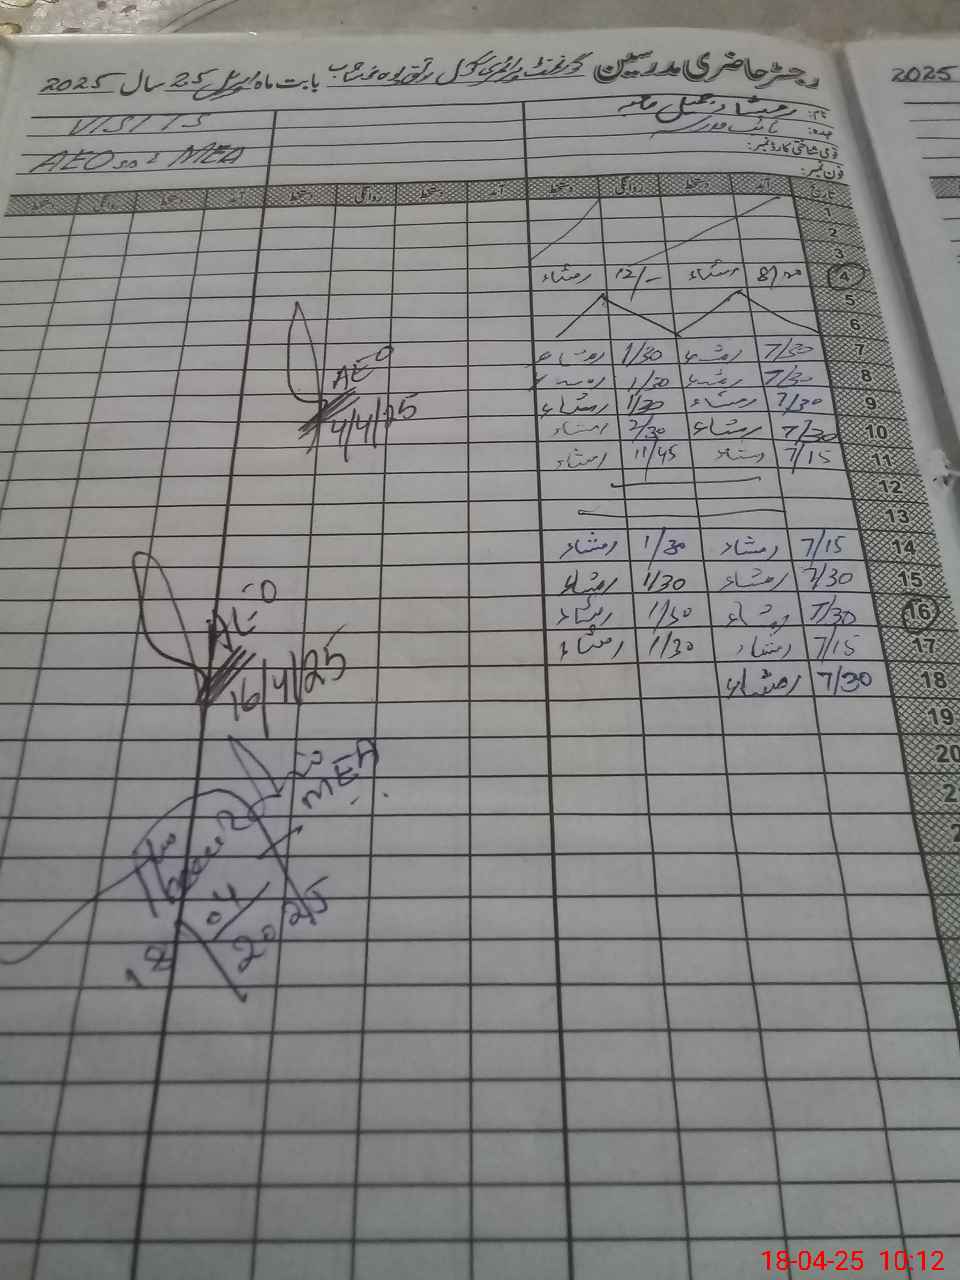 رجسٹر حاضری مدرسین گورنمنٹ پرائمری سکول بابت ماہ اپریل 25 سال 2025
2025
نام:
عہدہ:
قومی شناختی کارڈ نمبر:
فون نمبر:
VISITS
AEO so 2 MEA
تاریخ آمد دستخط روانگی دستخط آمد دستخط روانگی دستخط آمد دستخط روانگی دستخط
1
2
3
4 8/00 رمشاء 12/- رمشاء
5
6
7 7/30 رمشاء 1/30 رمشاء
8 7/30 رمشاء 1/30 رمشاء
9 7/30 رمشاء 1/30 رمشاء
10 7/30 رمشاء 2/30 رمشاء
11 7/15 رمشاء 11/45 رمشاء
12
13
14 7/15 رمشاء 1/30 رمشاء
15 7/30 رمشاء 1/30 رمشاء
16 7/30 رمشاء 1/30 رمشاء
17 7/15 رمشاء 1/30 رمشاء
18 7/30 رمشاء
19
20
AEO
4/4/25
AEO
16/4/25
MEA
18/04/2025
18-04-25 10:12